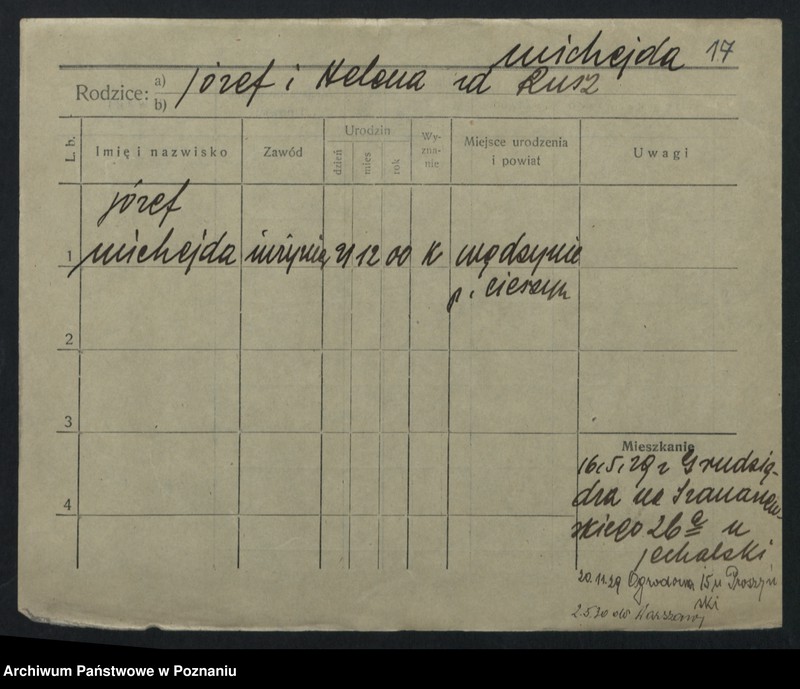 Michejda 17
Rodzice: a) Józef i Helena zd Rusz
b)
L. b.
Imię i nazwisko
Zawód
Urodzin
dzień
mies
rok
Wy-
zna-
nie
Miejsce urodzenia
i powiat
Uwagi
Józef
1 Michejda 12 00 K
p. Cieszyn
2
3
4
Mieszkanie
16.5.29 z Grudzią-
dza na
skiego 26a u
20.11.29 Ogrodowa 15 u Proszyń
ski
2.5.30 do Warszawy
Archiwum Państwowe w Poznaniu